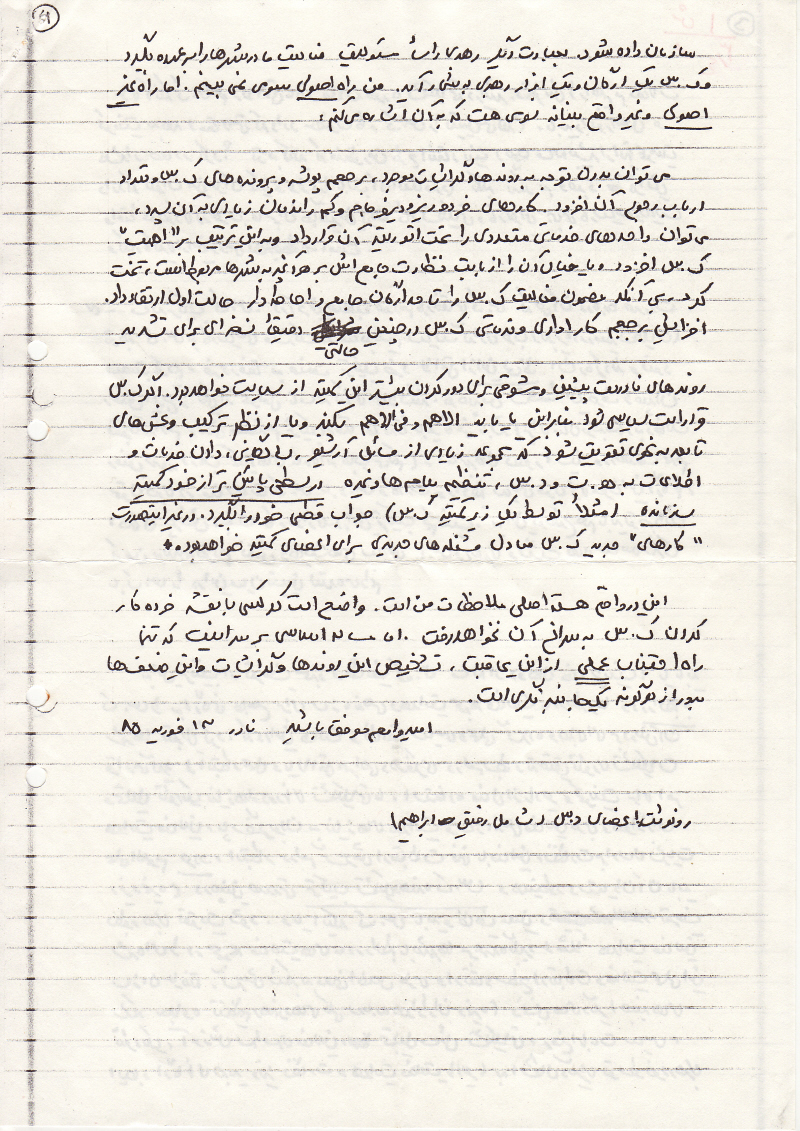 ۴
سازمان داده شود. بعبارت دیگر رهبری رأساً مسئولیت فعالیت ما در شهرها را بر عهده بگیرد
و ک.س یک ارگان و یک ابزار رهبری به شمار آید. من راه اصولی سومی نمی بینم. اما راه غیر
اصولی و غیر واقع بینانه سومی هست که به آن اشاره می کنم:
می توان بدون توجه به روندها و گرایشات موجود، بر حجم پوشه و پرونده های ک.س و تعداد
ارباب رجوع آن افزود. کارهای خرد و ریز و دیرفرجام و کم راندمان زیادی به آن سپرد،
می توان واحدهای خدماتی متعددی را تحت اتوریته آن قرار داد و به این ترتیب بر "اهمیت"
ک.س افزود و یا خیال آن را از بابت نظارت جامع اش بر هر آنچه به شهرها مربوط است، تخت
کرد، بی آنکه مضمون فعالیت ک.س را تا حد ارگان جامع و احاطه دار حالت اول ارتقاء داد.
افزایش حجم کار اداری و خدماتی ک.س در چنین حالتی دقیقاً نسخه ای برای تشدید
روندهای نادرست پیشین و مشوقی برای دور کردن بیشتر این کمیته از سیاست خواهد بود. اگر ک.س
قرار است سیاسی شود بنابراین یا باید الاهم و فی الاهم بکند و یا از نظر ترکیب و بخش های
تابعه به نحوی تقویت شود که مجموعه زیادی از مسائل آرشیو، بایگانی، دادن خدمات و
اطلاعات به ه.ت و د.س، تنظیم پیام ها و غیره در سطحی پائین تر از خود کمیته
سازمانده (مثلاً توسط یک زیر کمیته ک.س) جواب قطعی خود را بگیرد. در غیر اینصورت
"کارهای" جدید ک.س معادل مشغله های جدیدی برای اعضای کمیته خواهد بود.
این در واقع هسته اصلی ملاحظات من است. واضح است که کسی با نقشه خرده کار
کردن ک.س به سراغ آن نخواهد رفت. اما مساله اساسی بر سر اینست که تنها
راه اجتناب عملی از این عاقبت، تشخیص این روندها و گرایشات و این ضعف ها
بدور از هرگونه یکجانبه نگری است.
امیدوارم موفق باشید نادر ۱۳ فوریه ۸۵
رونوشت: اعضای د.س (شامل رفیق ابراهیم)